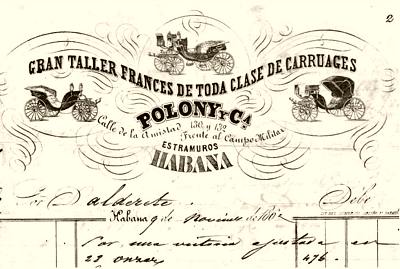 2
GRAN TALLER FRANCES DE TODA CLASE DE CARRUAGES
POLONY Y Cª
Calle de la Amistad 130 y 132 Frente al Campo Militar
ESTRAMUROS
HABANA
Calderita Debe
Habana 9 de Noviembre de 186
Por una victoria ajustada en
28 onzas 476